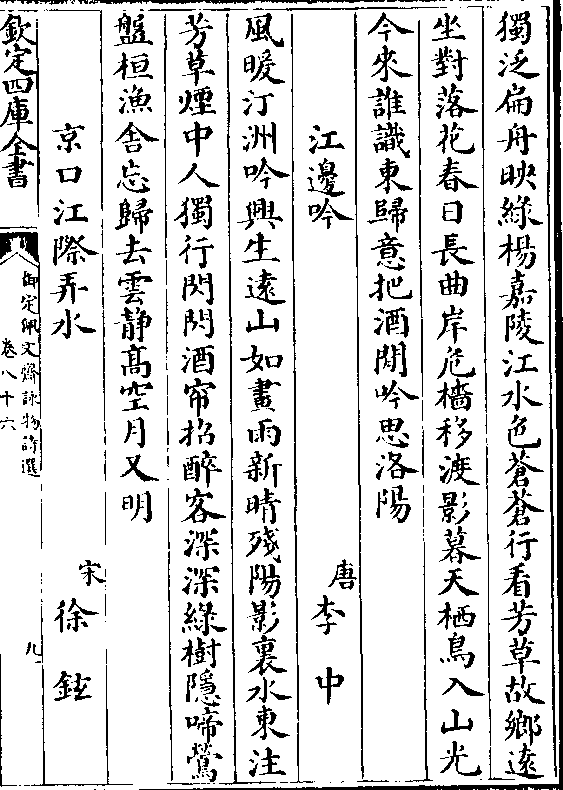 獨泛扁舟映綠楊嘉陵江水色蒼蒼行看芳草故鄉遠
坐對落花春日長曲岸危檣移渡影暮天栖鳥入山光
今來誰識東歸意把酒閒吟思洛陽
江邊吟 唐 李中
風暖汀洲吟興生遠山如畫雨新晴殘陽影裏水東注
芳草煙中人獨行閃閃酒帘招醉客深深綠樹隱啼鶯
盤桓漁舍忘歸去雲静髙空月又明
京口江際弄水 宋 徐鉉
欽定四庫全書
御定佩文齋詠物詩選
卷八十六
九